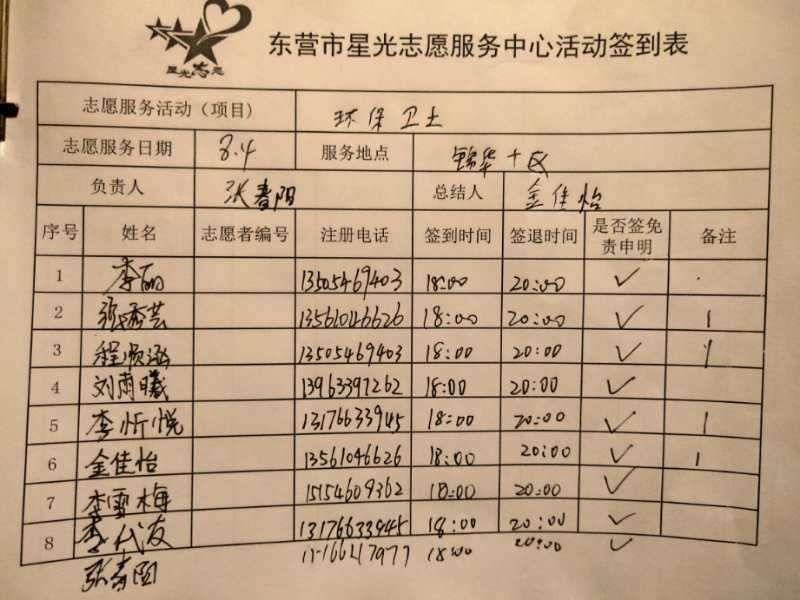 星光志愿
东营市星光志愿服务中心活动签到表
志愿服务活动（项目） 环保卫士
志愿服务日期 8.4 服务地点 锦华十区
负责人 张春阳 总结人 金佳怡
序号 姓名 志愿者编号 注册电话 签到时间 签退时间 是否签免责申明 备注
1 李丽 13505469403 18:00 20:00 ✓
2 13561046626 18:00 20:00 ✓ 1
3 13505469403 18:00 20:00 ✓ 1
4 刘雨曦 13963397262 18:00 20:00 ✓
5 李忻悦 13176633945 18:00 20:00 ✓ 1
6 金佳怡 13561046626 18:00 20:00 ✓ 1
7 李雪梅 15154609362 18:00 20:00 ✓
8 李代友 13176633945 18:00 20:00 ✓
张春阳 18:00 20:00 ✓